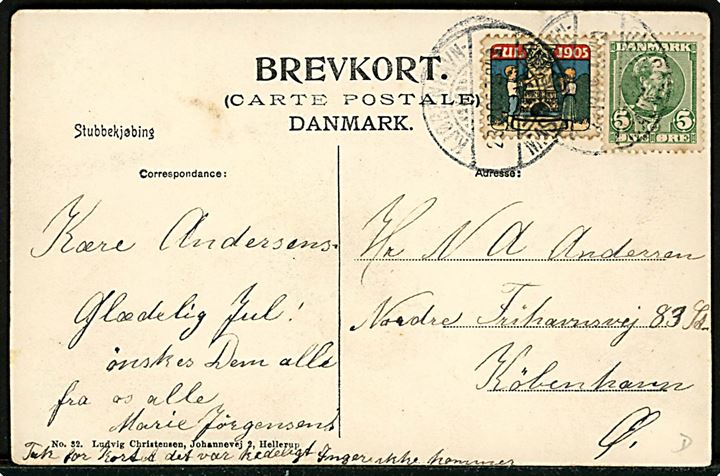 BREVKORT.
(CARTE POSTALE)
DANMARK.
Stubbekjøbing
JUL 1905
DANMARK
5 5
ØRE
Correspondance:
Adresse:
Kære Andersens.
Glædelig Jul!
ønskes Dem alle
fra os alle
Marie Jörgensen
Hr. N A Andersen
Nordre Frihavnsvej 83
København
Ø.
No. 32. Ludvig Christensen, Johannevej 2, Hellerup
Tak for Kort det var kedeligt Inger ikke kommer
D